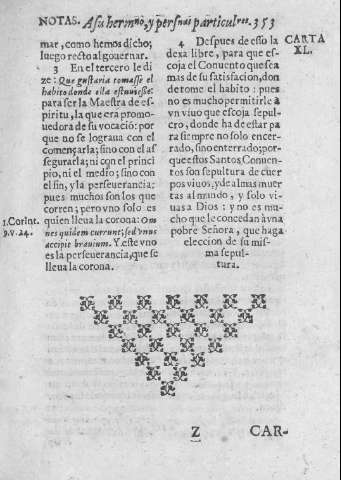 NOTAS. A su hermño, y persnas particulres. 353
mar, como hemos dicho;
luego recto al gouernar.
3 En el tercero le di-
ze: Que gustaria tomasse el
habito donde ella estuuiesse:
para ser la Maestra de es-
piritu, la que era promo-
uedora de su vocació: por
que no se lograua con el
comēçarla; sino con el as-
segurarla; ni con el princi-
pio, ni el medio; sino con
el fin, y la perseuerancia;
pues muchos son los que
corren; pero vno solo es
quien lleua la corona: Om
nes quidem currunt; sed vnus
accipit brauium. Y este vno
es la perseuerancia, que se
lleua la corona.
1. Corint.
9. v. 24.
CARTA
XL.
4 Despues de esso la
dexa libre, para que es-
coja el Conuento que sea
mas de su satisfacion, don
de tome el habito: pues
no es mucho permitirle à
vn viuo que escoja sepul-
cro, donde ha de estar pa
ra siempre no solo encer-
rado, sino enterrado; por-
que estos Santos Conuen-
tos son sepultura de cuer
pos viuos, y de almas muer
tas al mundo, y solo vi-
uas a Dios: y no es mu-
cho que le concedan à vna
pobre Señora, que haga
eleccion de su mis-
ma sepul-
tura.
Z CAR-